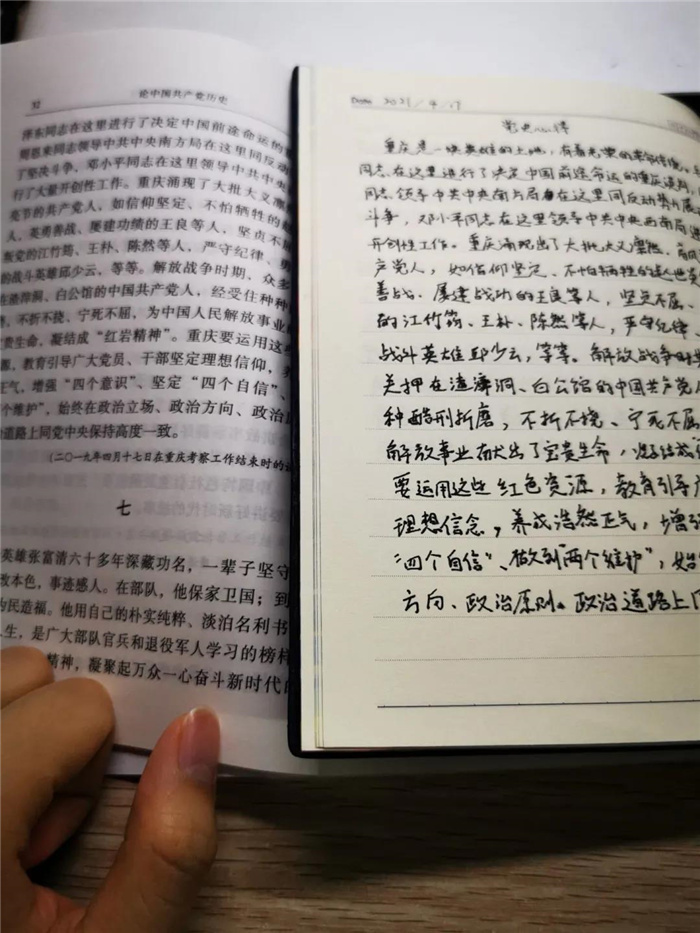 32
论中国共产党历史
泽东同志在这里进行了决定中国前途命运的
周恩来同志领导中共中央南方局在这里同反动
了坚决斗争，邓小平同志在这里领导中共中央
行了大量开创性工作。重庆涌现了大批大义凛
亮节的共产党人，如信仰坚定、不怕牺牲的
人，英勇善战、屡建功绩的王良等人，坚贞不
叛党的江竹筠、王朴、陈然等人，严守纪律、勇
的战斗英雄邱少云，等等。解放战争时期、众多
在渣滓洞、白公馆的中国共产党人，经受住种种
，不折不挠、宁死不屈，为中国人民解放事业
贵生命，凝结成“红岩精神”。重庆要运用这
源，教育引导广大党员、干部坚定理想信仰，养
正气，增强“四个意识”、坚定“四个自信”、
个维护”，始终在政治立场、政治方向、政治
道路上同党中央保持高度一致。
（二〇一九年四月十七日在重庆考察工作结束时的讲
七
英雄张富清六十多年深藏功名，一辈子坚守
改本色，事迹感人。在部队，他保家卫国；到
为民造福。他用自己的朴实纯粹、淡泊名利书
生，是广大部队官兵和退役军人学习的榜样
精神，凝聚起万众一心奋斗新时代的
Date 2021/4/17
党史心得
重庆是一块英雄的土地，有着光荣的革命传统，毛
同志在这里进行了决定中国前途命运的重庆谈判，
同志领导中共中央南方局在这里同反动势力展
斗争，邓小平同志在这里领导中共中央西南局进
开创性工作。重庆涌现出了大批大义凛然、高风
产党人，如信仰坚定、不怕牺牲的赵世炎
善战、屡建战功的王良等人，坚贞不屈、
的江竹筠、王朴、陈然等人，严守纪律、
战斗英雄邱少云，等等。解放战争时
关押在渣滓洞、白公馆的中国共产党人
种酷刑折磨，不折不挠、宁死不屈
解放事业献出了宝贵生命，凝结成
要运用这些红色资源，教育引导广
理想信念，养成浩然正气，增强
“四个自信”、做到“两个维护”，始
方向、政治原则。政治道路上同